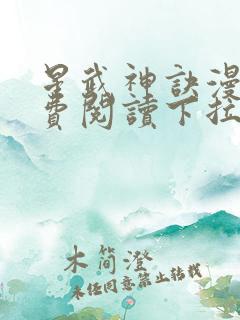 星武神訣漫
費閱讀下拉
木簡澄
未经同意禁止转载